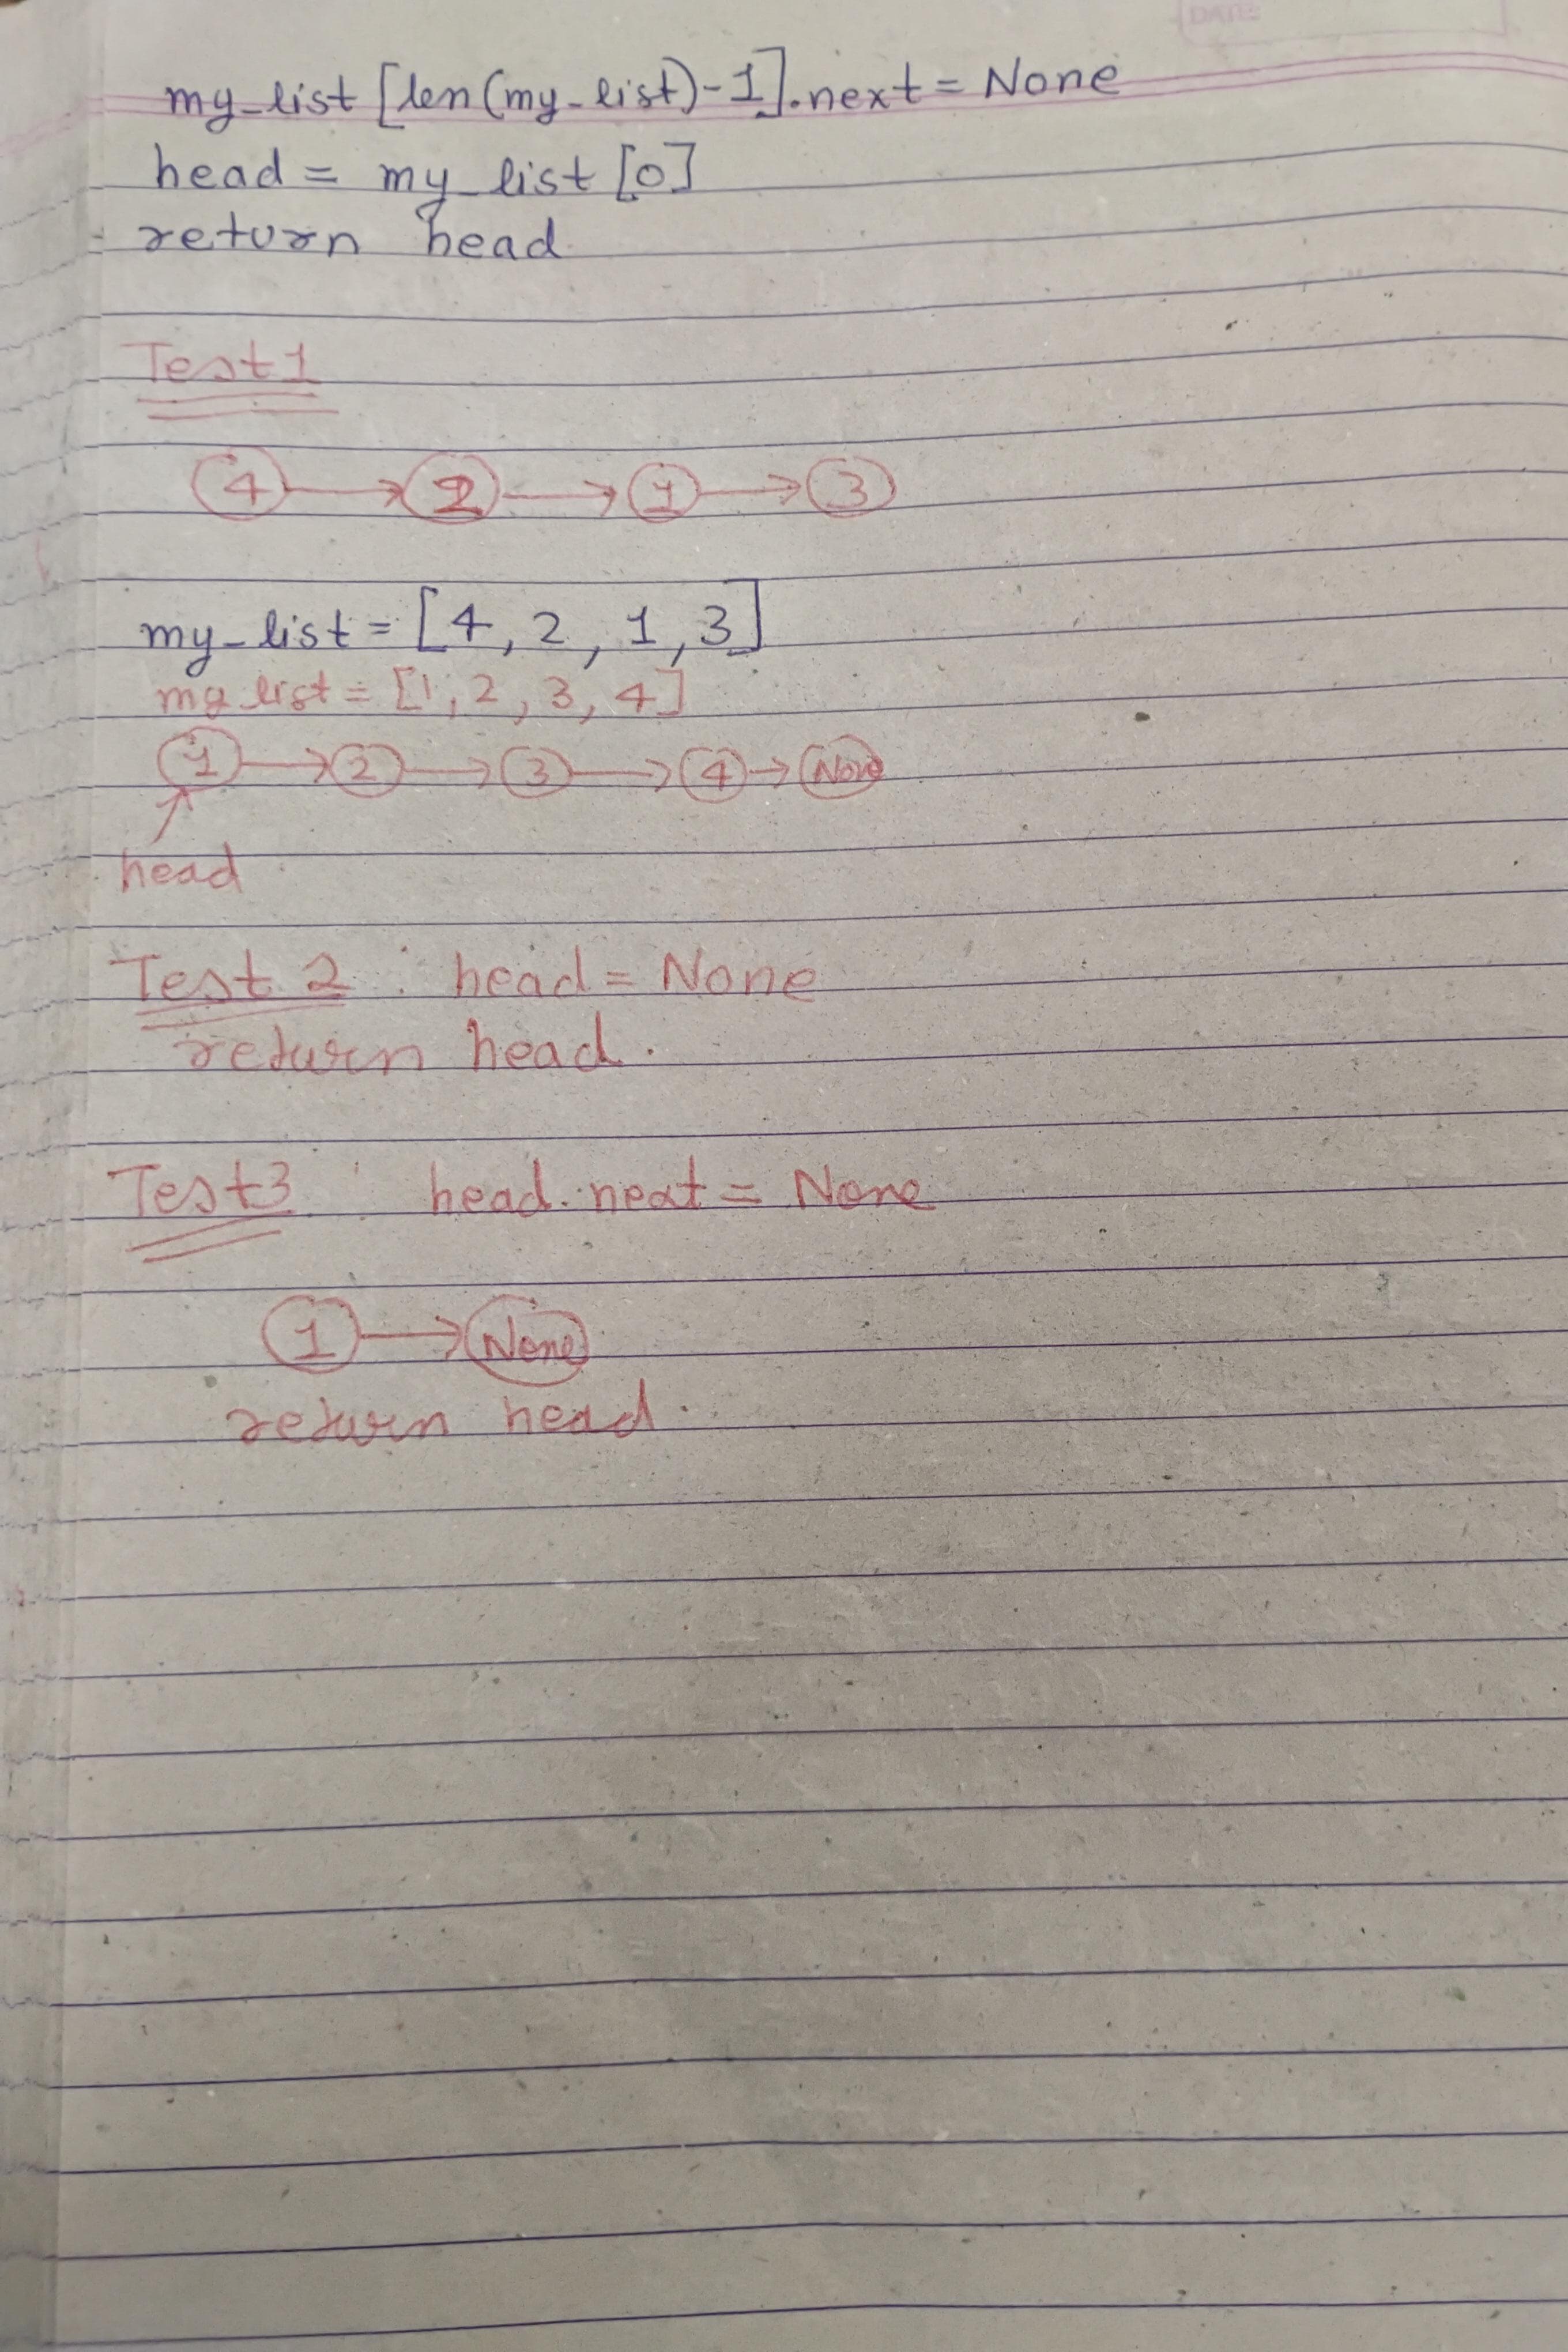 DATE:
my_list [len(my_list)-1].next = None
head = my_list [0]
return head
Test 1
4 → 2 → 1 → 3
my_list = [4, 2, 1, 3]
my list = [1, 2, 3, 4]
1 → 2 → 3 → 4 → None
head
Test 2 : head = None
return head.
Test 3 : head.next = None
1 → None
return head.